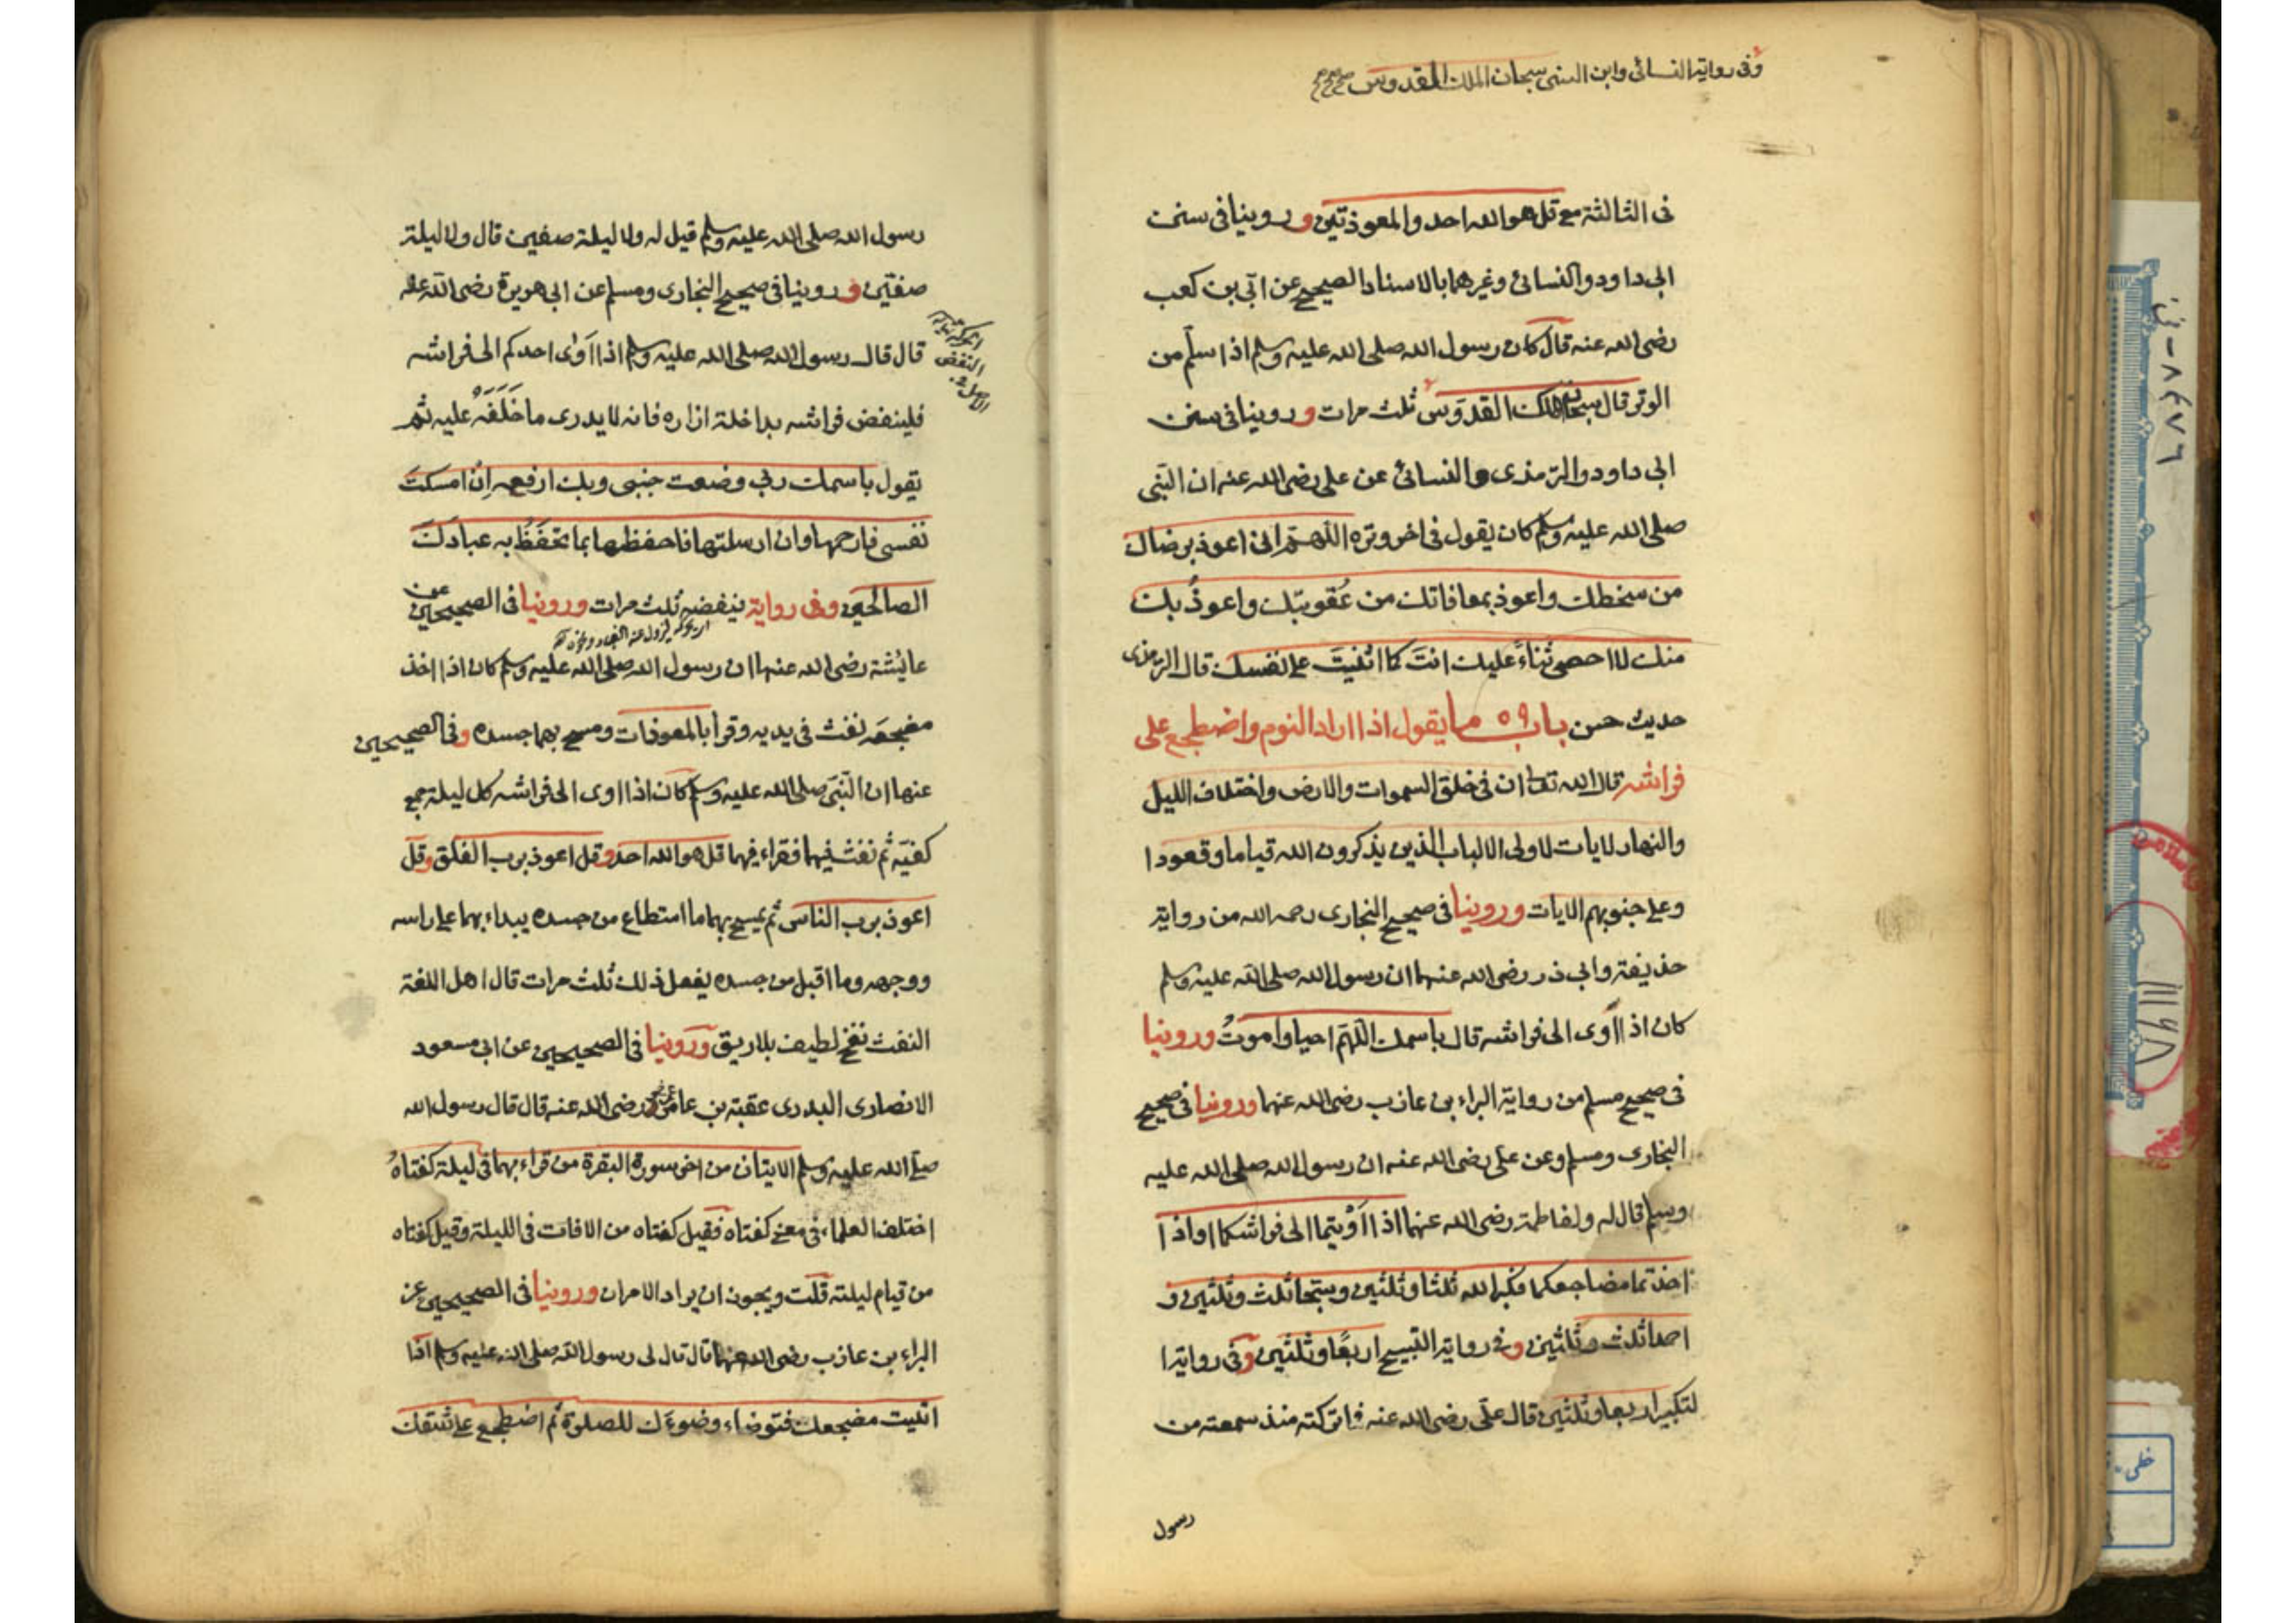 وفى رواية النسائى وابن السنى سبحان الملك القدوس
فى الثالثة مع قل هو الله احد والمعوذتين وروينا فى سنن
ابى داود والنسائى وغيرهما بالاسناد الصحيح عن ابّى بن كعب
رضى الله عنه قال كان رسول الله صلى الله عليه وسلم اذا سلّم من
الوتر قال سبحان الملك القدوّس ثلث مرات وروينا فى سنن
ابى داود والترمذى والنسائى عن على رضى الله عنه ان النبى
صلى الله عليه وسلم كان يقول فى اخر وتره اللهم انى اعوذ برضاك
من سخطك واعوذ بمعافاتك من عُقوبتك واعوذُ بك
منك لا احصى ثناءً عليك انتَ كما اثنيتَ على نفسك قال الترمذى
حديث حسن باب ٥٩ ما يقول اذا اراد النوم واضطجع على
فراشه قال الله تعا ان فى خلق السموات والارض واختلاف الليل
والنهار لايات لاولى الالباب الذين يذكرون الله قياما وقعودا
وعلى جنوبهم الايات وروينا فى صحيح البخارى رحمه الله من رواية
حذيفة وابى ذر رضى الله عنهما ان رسول الله صلى الله عليه وسلم
كان اذا اوى الى فراشه قال باسمك اللّهمّ احيا واموتُ وروينا
فى صحيح مسلم من رواية البراء بن عازب رضى الله عنهما وروينا فى صحيح
البخارى ومسلم وعن على رضى الله عنه ان رسول الله صلى الله عليه
وسلم قال له ولفاطمة رضى الله عنهما اذا اَوَيتما الى فراشكما او اذا
اخذتما مضاجعكما فكبرا الله ثلثا وثلثين وسبّحا ثلث وثلثين و
احمدا ثلث وثلثين وفى رواية التسبيح اربعًا وثلثين وفى رواية ا
لتكبير اربعا وثلثين قال علىّ رضى الله عنه فما تركته منذ سمعته من
رسول
رسول الله صلى الله عليه وسلم قيل له ولا ليلة صفين قال ولا ليلة
صفّين وروينا فى صحيح البخارى ومسلم عن ابى هريرة رضى الله عنه
قال قال رسول الله صلى الله عليه وسلم اذا اَوٰى احدكم الى فراشه
النفض
فلينفض فراشه بداخلة ازاره فانه لا يدرى ما خَلَفَهُ عليه ثم
يقول باسمك ربى وضعت جنبى وبك ارفعه اِن امسكتَ
نفسى فارحمها وان ارسلتها فاحفظها بما تحفَظُ به عبادَكَ
الصالحين وفى رواية ينفضه ثلث مرات وروينا فى الصحيحين عن
عايشة رضى الله عنها ان رسول الله صلى الله عليه وسلم كان اذا اخذ
مضجعَه نفث فى يديه وقرأ بالمعوذات ومسح بهما جسده وفى الصحيحين
عنها ان النّبىّ صلى الله عليه وسلم كان اذا اوى الى فراشه كل ليلة جمع
كفيّه ثم نفث فيهما فقراء فيهما قل هو الله احد وقل اعوذ برب الفلق وقل
اعوذ برب الناس ثم يمسح بهما ما استطاع من جسده يبداء بهما على راسه
ووجهه وما اقبل من جسده يفعل ذلك ثلث مرات قال اهل اللغة
النفث نفخ لطيف بلا ريق وروينا فى الصحيحين عن ابى مسعود
الانصارى البدرى عقبة بن عامر رضى الله عنه قال قال رسول الله
صلى الله عليه وسلم الايتان من اخر سورة البقرة من قراء بهما فى ليلة كفتاهُ
اختلف العلماء فى معنى كفتاه فقيل كفتاه من الافات فى الليلة وقيل كفتاه
من قيام ليلته قلت ويجوز ان يراد الامران وروينا فى الصحيحين عن
البراء بن عازب رضى الله عنهما قال قال لى رسول الله صلى الله عليه وسلم اذا
اتيت مضجعك فتوضاء وضوءك للصلوة ثم اضطجع على شقك
٨٤٧٦
خطى